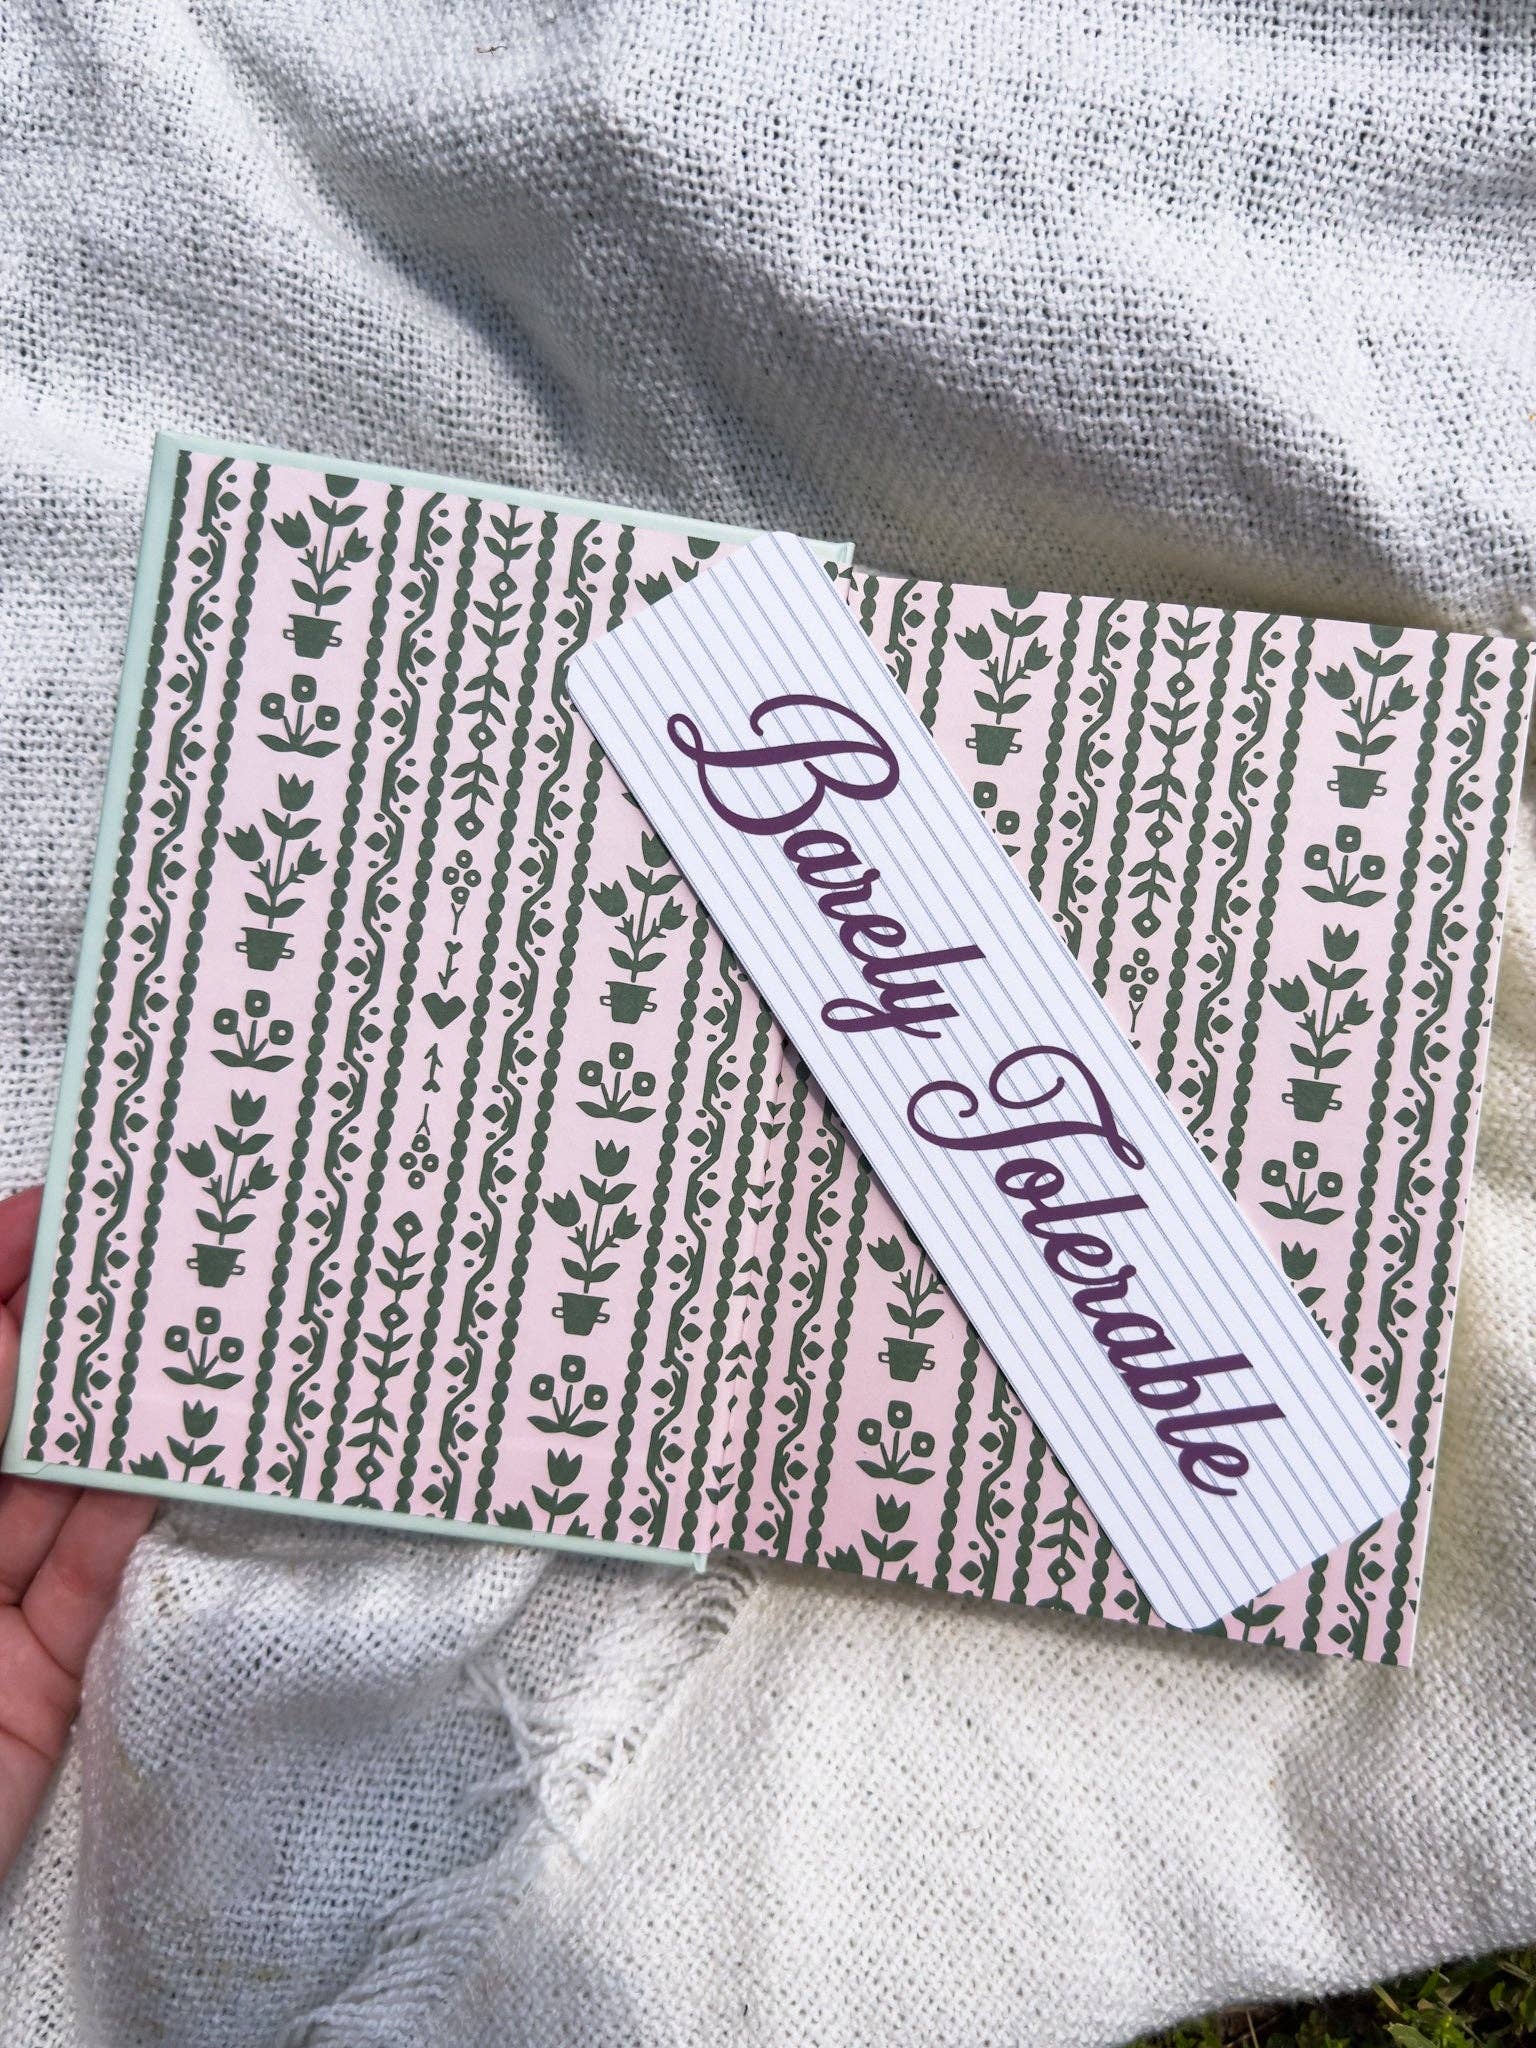 Barely Tolerable